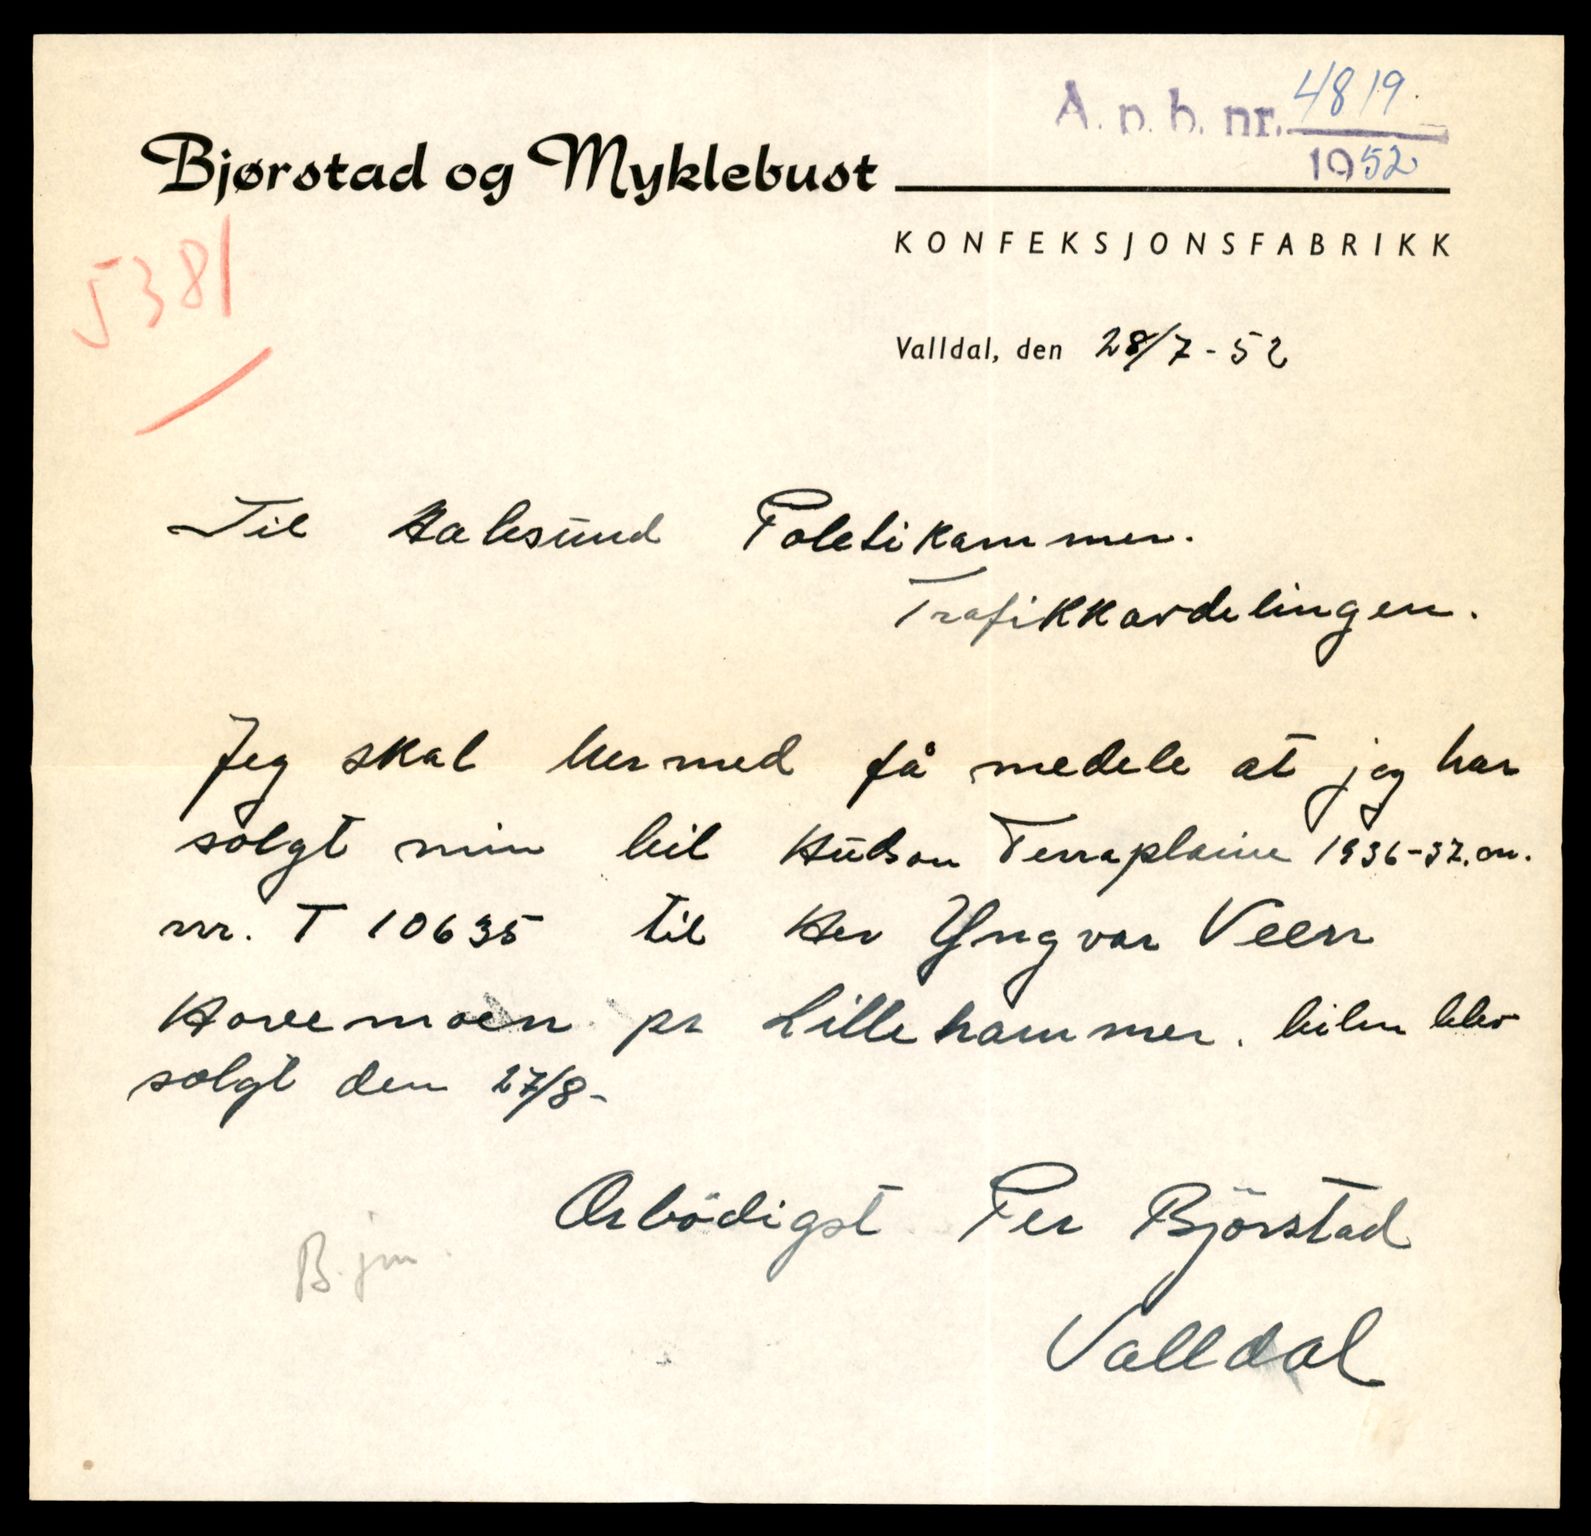 A. p. b. nr. 4819
1952
Bjørstad og Myklebust
KONFEKSJONSFABRIKK
5381
Valldal, den 28/7-52
Til Aalesund Poletikammer.
Trafikkavdelingen.
Jeg skal hermed få medele at jeg har
solgt min bil Hudson Terraplaine 1936-37.m.
nr. T 10635 til Her Yngvar
Hovemoen pr Lillehammer. bilen blev
solgt den 27/8-
Ærbödigst Per Björstad
Valldal